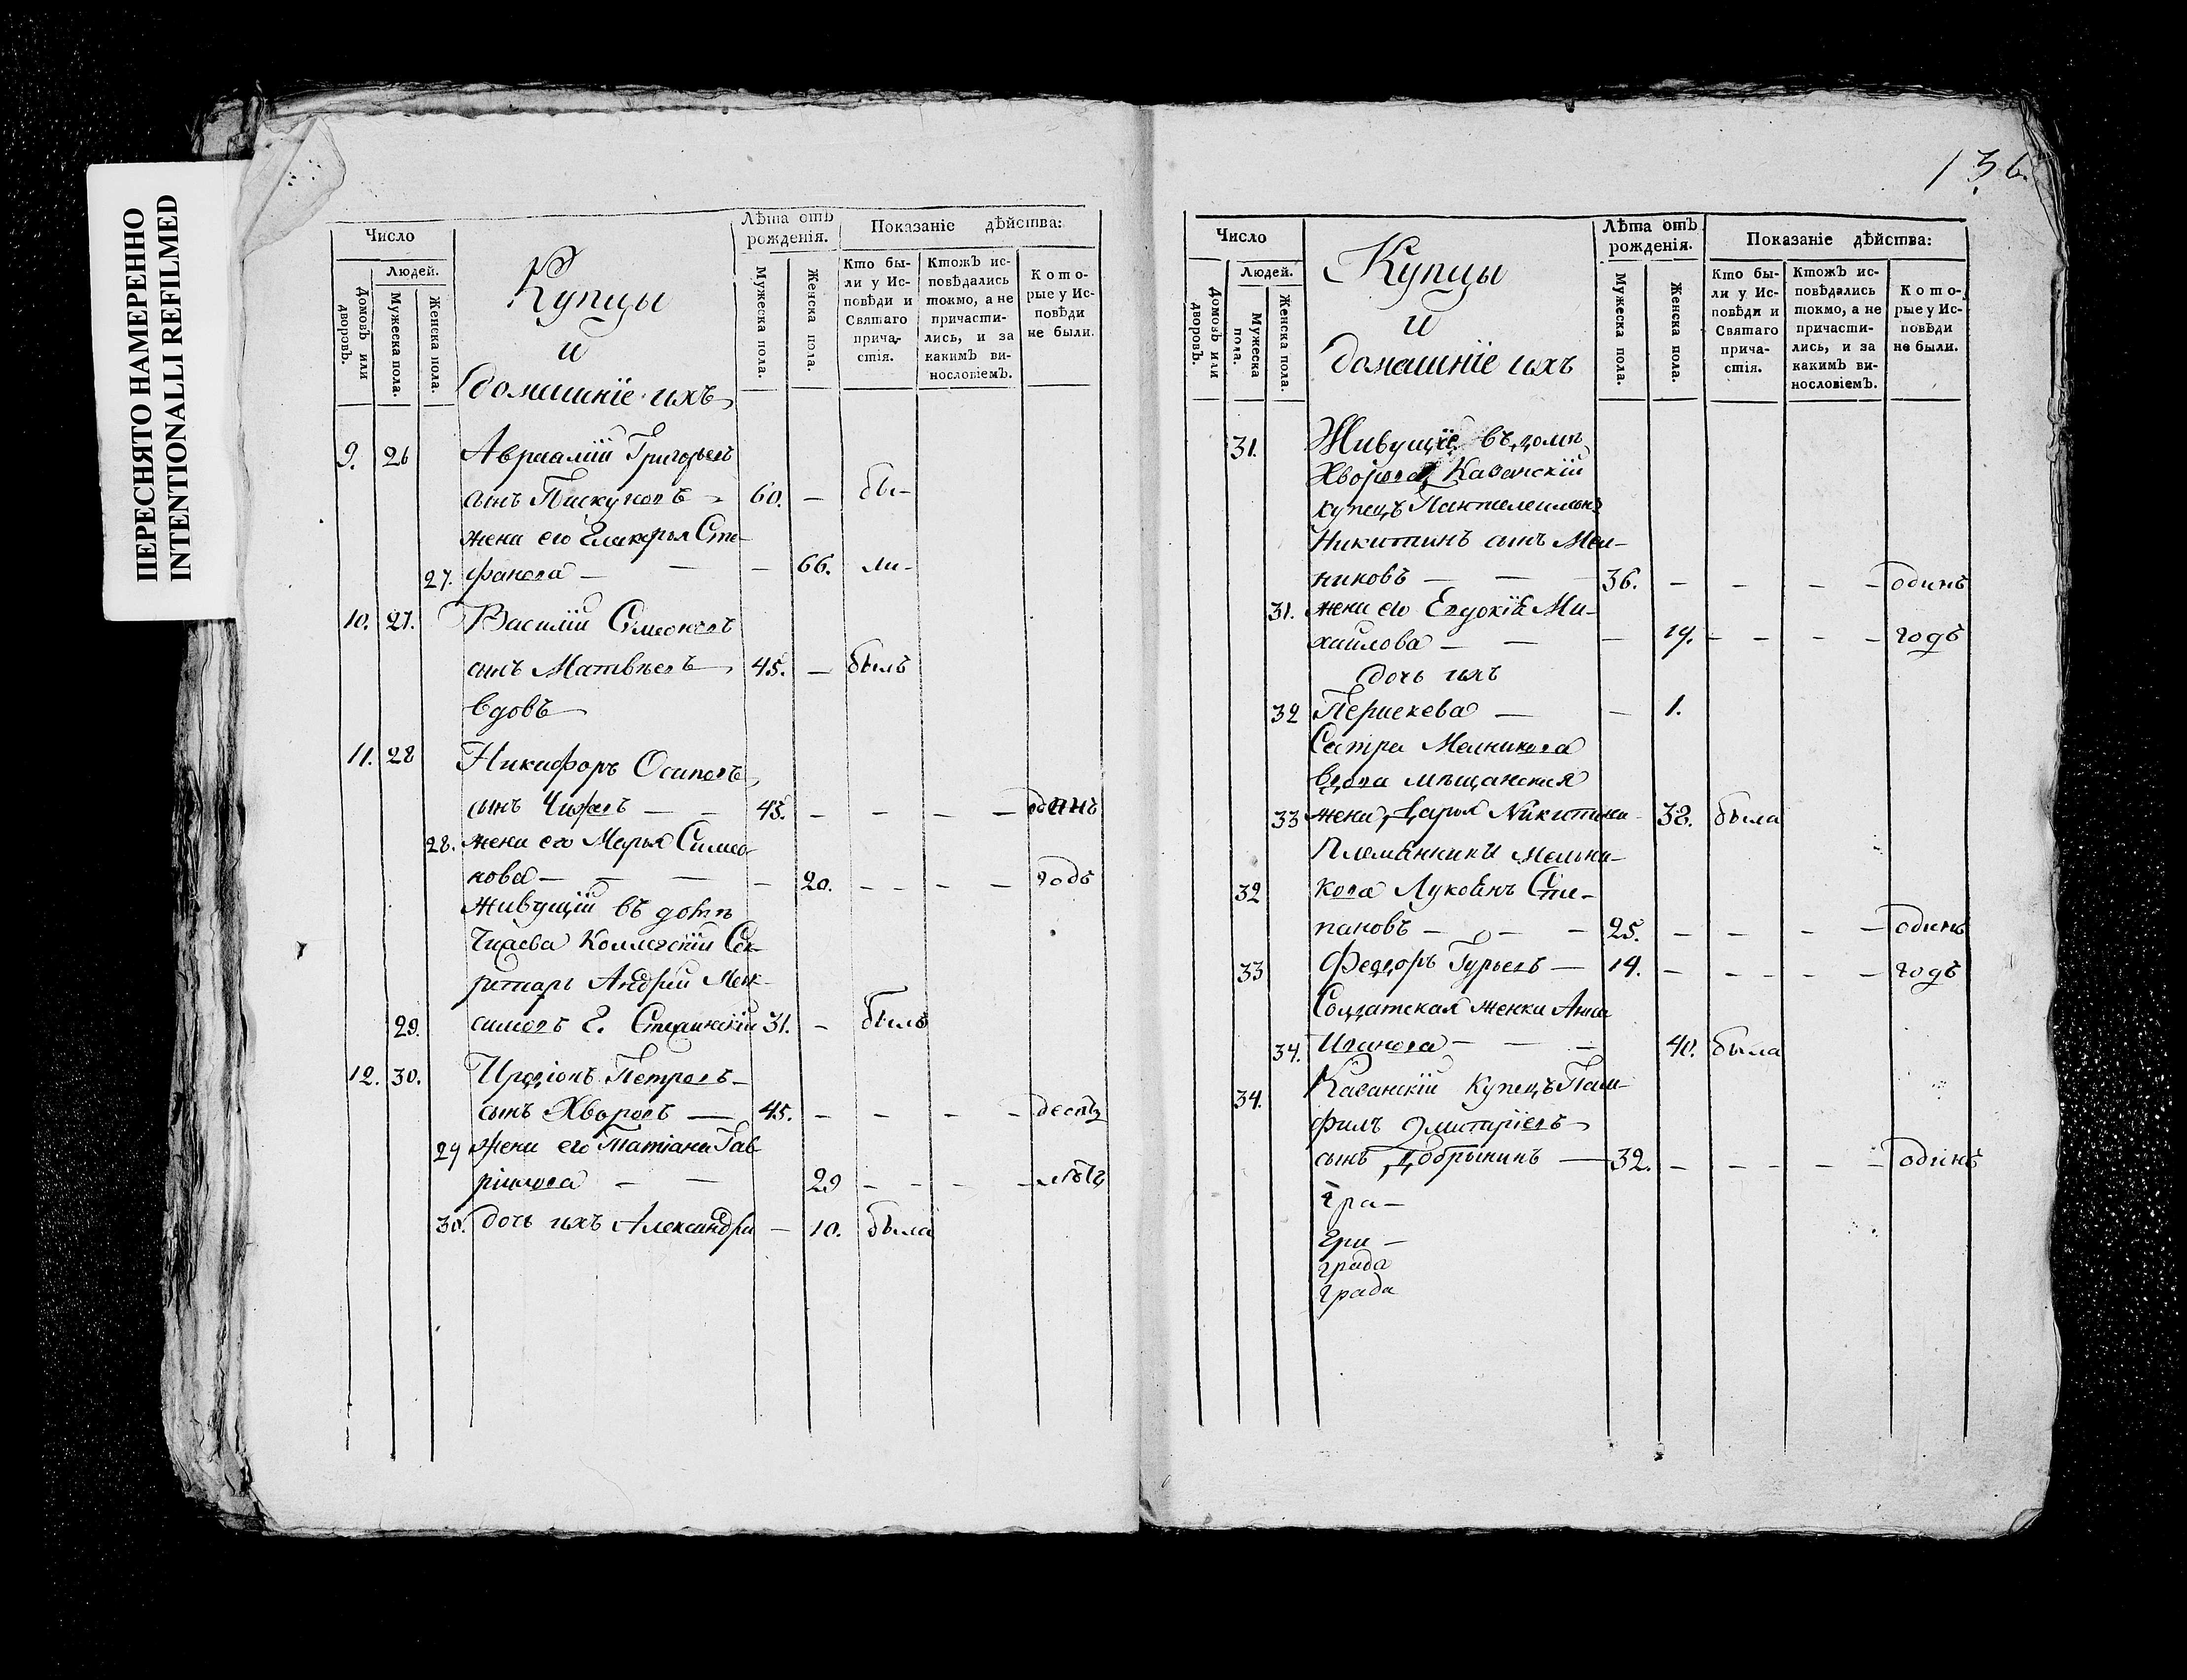 ПЕРЕСНЯТО НАМЕРЕННО
INTENTIONALLI REFILMED
136.
Число
Людей.
Домовъ или дворовъ.
Мужеска пола.
Женска пола.
Купцы
и
домашніе ихъ
Лѣта отъ рожденія.
Мужеска пола.
Женска пола.
Показаніе дѣйства:
Кто были у Исповѣди и Святаго причастія.
Ктожъ исповѣдались токмо, а не причастились, и за какимъ винословіемъ.
Которые у Исповѣди не были.
9. 26 Авраамій Григорьевъ
сынъ Пискуновъ 60. — бы-
жена его Гликерья Сте-
27. фанова — — — 66. ли-
10. 27. Василій Симеоновъ
сынъ Матвѣевъ 45. — былъ
вдовъ
11. 28 Никифоръ Осиповъ
сынъ — — 43. — — — — одинъ
28. жена его Марья Симео-
нова — — — 20. — — — — годъ
Живущій въ домѣ
Коллегскій Сек-
ретарь Андрей
29. 31. — былъ
12. 30. Иродіонъ Петровъ
сынъ Хворовъ — 45. — — — — десять
29 жена его Татіана Гав
рилова — — 29 — — — — лѣтъ
30. дочь ихъ Александра — 10. была
Число
Людей.
Домовъ или дворовъ.
Мужеска пола.
Женска пола.
Купцы
и
домашніе ихъ
Лѣта отъ рожденія.
Мужеска пола.
Женска пола.
Показаніе дѣйства:
Кто были у Исповѣди и Святаго причастія.
Ктожъ исповѣдались токмо, а не причастились, и за какимъ винословіемъ.
Которые у Исповѣди не были.
31. Живущіе въ домѣ
Хворова, Казанскій
купецъ Пантелеимонъ
Никитинъ сынъ Мел-
никовъ — — 36. — — — — одинъ
31. жена его Евдокія Ми-
хайлова — — — 19. — — — — годъ
дочь ихъ
32 Перискева — — 1.
Сестра Мелникова
вдова мѣщанская
33 жена, Дарья Никитина 38. была
Племянники Мельни-
32 кова Лукоянъ Сте-
пановъ — — — 25. — — — — одинъ
33 Феодоръ Гурьевъ — 19. — — — — — годъ
Солдатская женка Анна
34. Иванова — — — 40. была
34. Казанскій Купецъ Пам-
филъ Дмитріевъ
сынъ Добрынинъ — 32. — — — — — одинъ
гра —
гри —
града
града